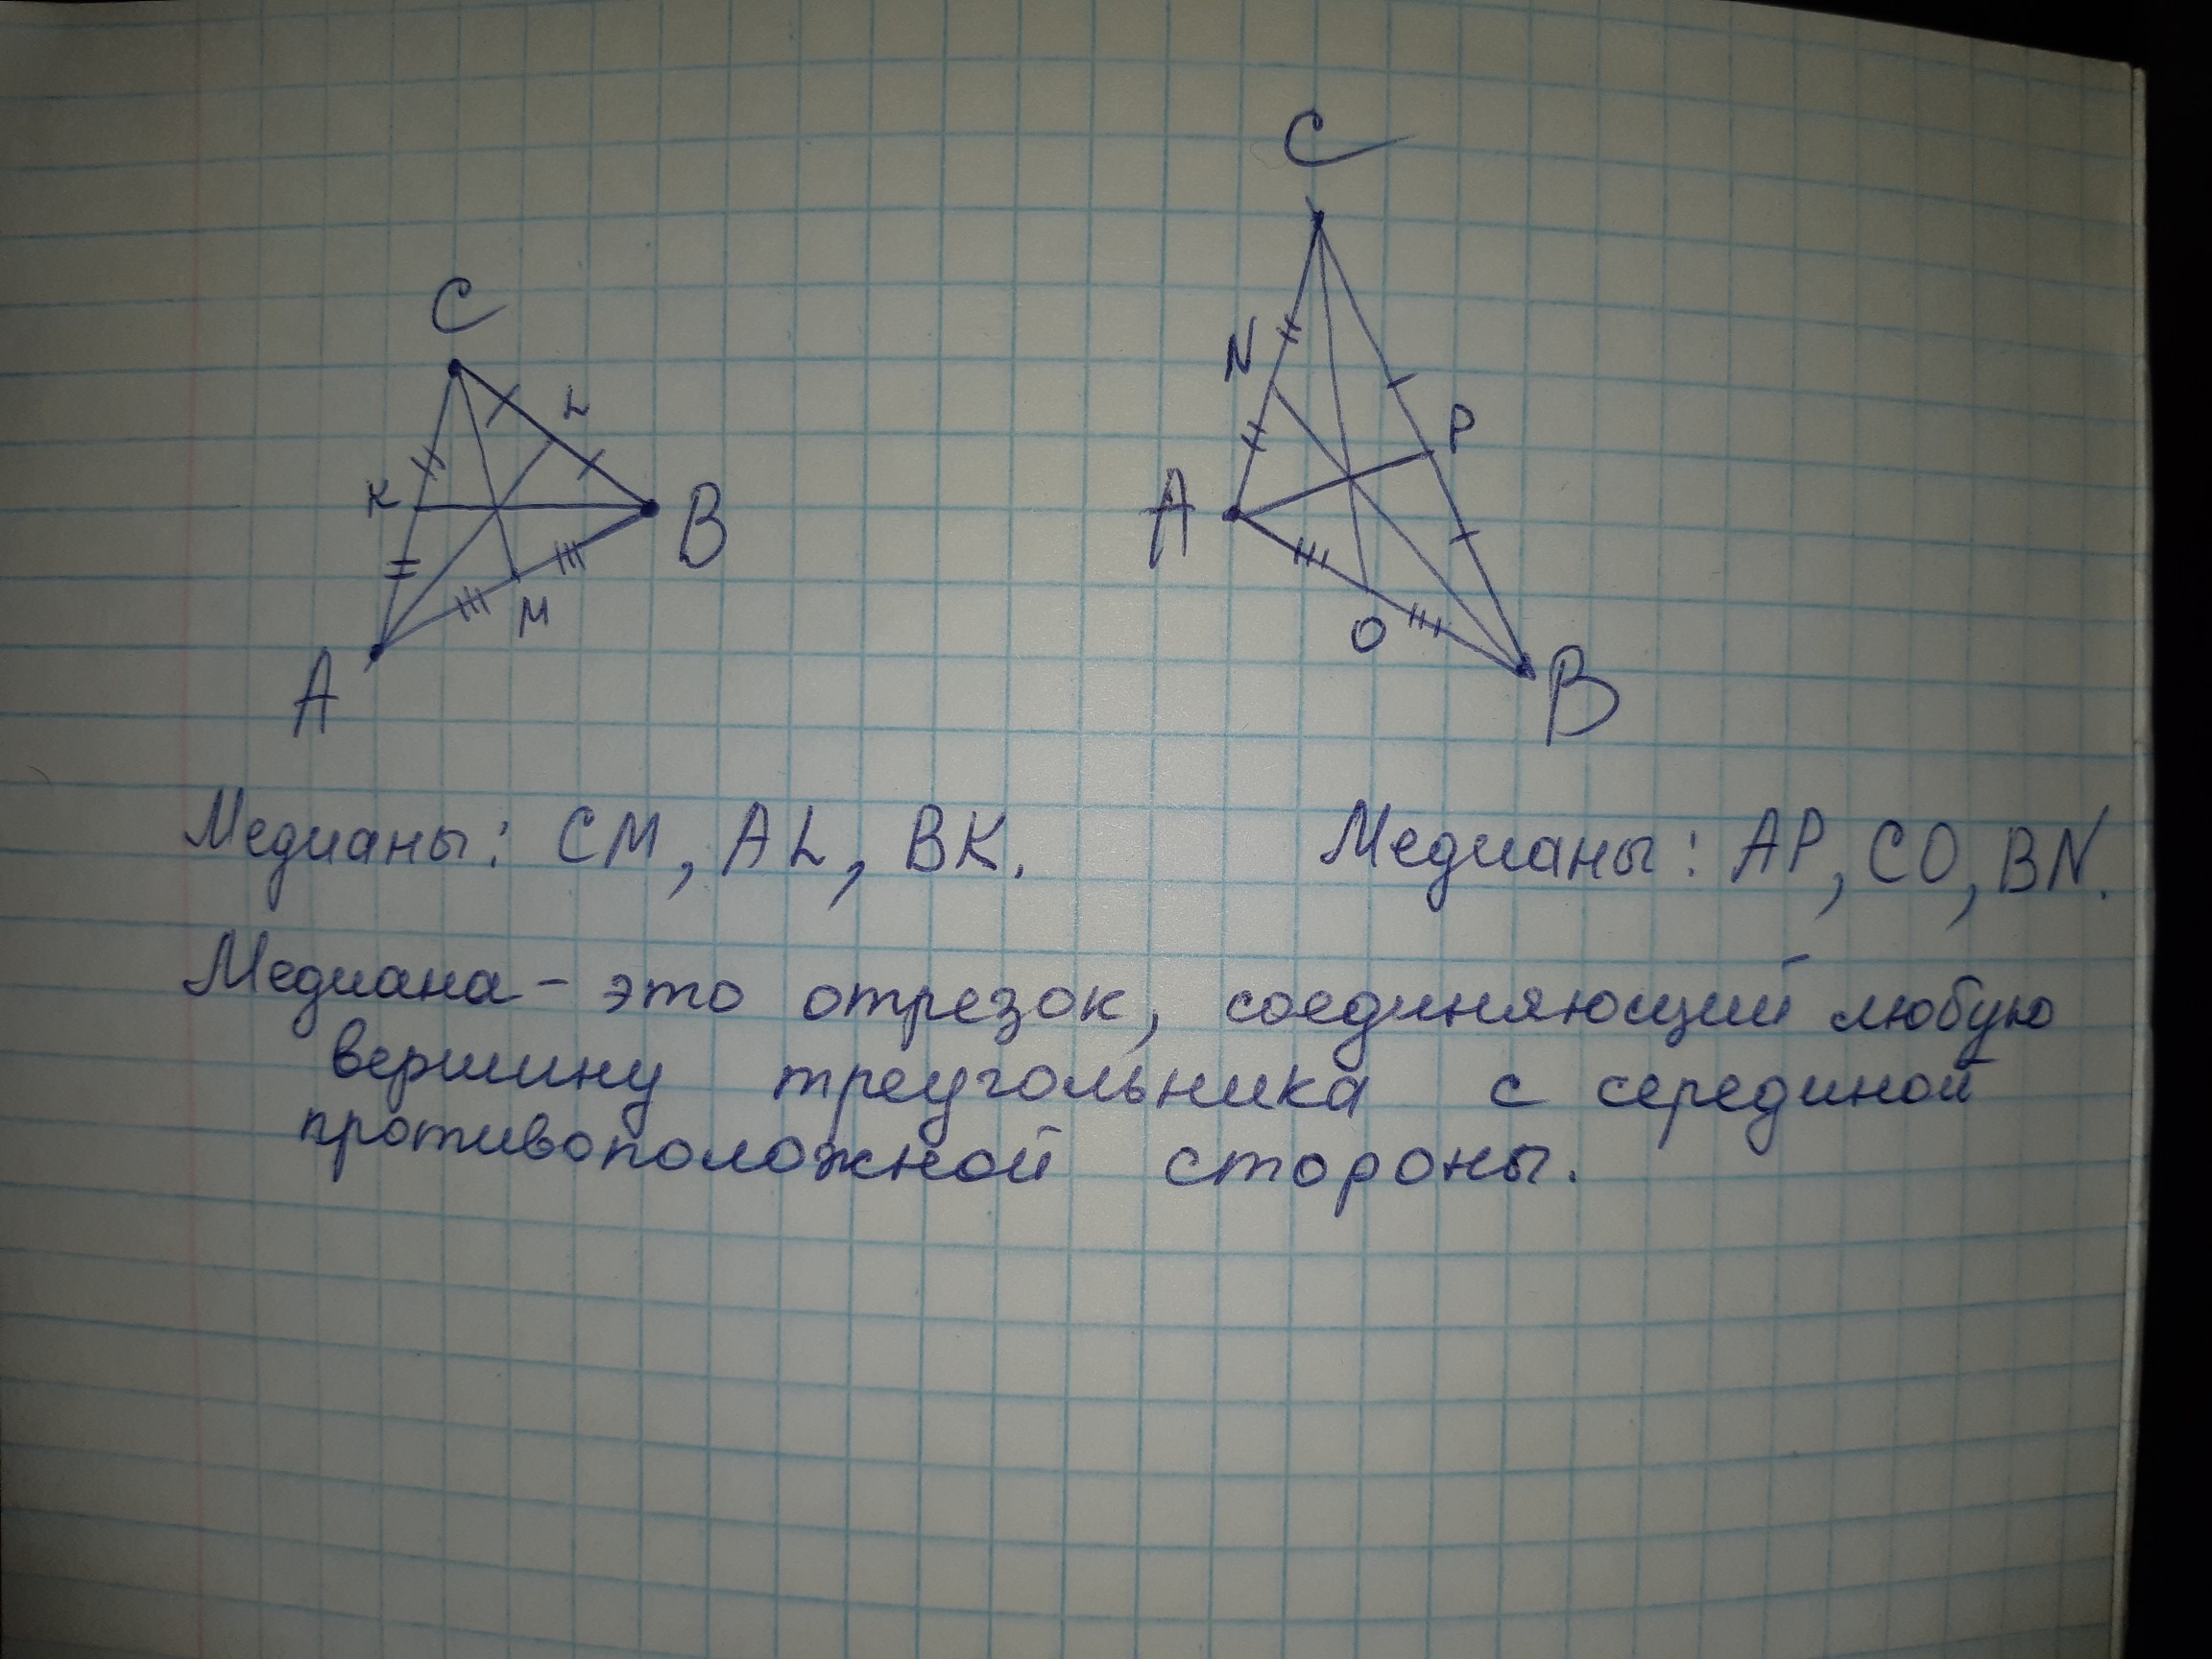 C
C
N
L
P
K
A
B
O
M
A
B
Медианы: CM, AL, BK.
Медианы: AP, CO, BN.
Медиана - это отрезок, соединяющий любую
вершину треугольника с серединой
противоположной стороны.